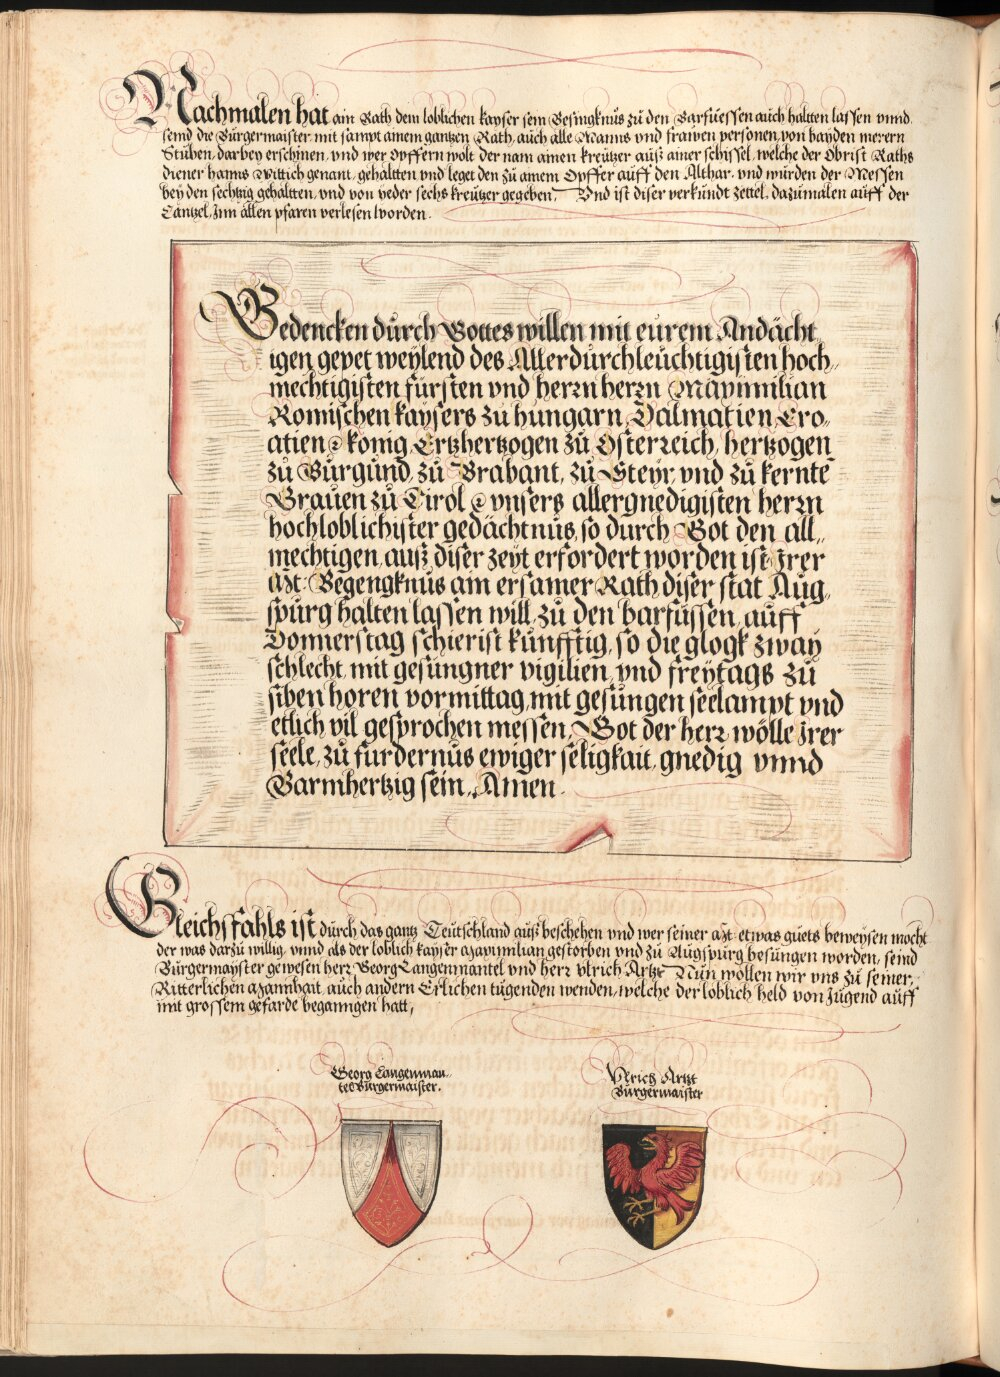 Nachmalen hat ain Rath dem loblichen kayser sein Besingknus zu den Barfuessen auch haltten lassen vnnd
seind die Burgermaister, mit sampt ainem gantzen Rath, auch alle Manns vnd frawen personen, von bayden merern
Stuben, darbey erschinen, vnd wer Opffern wolt der nam ainen kreutzer auß ainer schissel, welche der Obrist Raths
diener hanns Wittich genant, gehaltten vnd leget den zu ainem Opffer auff den Althar, vnd wurden der Messen
bey den sechtzig gehaltten, vnd von yeder sechs kreutzer gegeben, Vnd ist diser verkundt zettel, dazumalen auff der
Cantzel, Inn allen pfaren verlesen worden.
Gedencken durch Gottes willen mit eurem Andächt
igen gepet weylend des Allerdurchleuchtigisten hoch
mechtigisten fursten vnd herrn herrn Maximilian
Romischen kaysers zu hungarn, Dalmatien, Cro
atien &c konig, Ertzhertzogen zu Osterreich, hertzogen
zu Burgund, zu Brabant, zu Steyr, vnd zu kernte
Grauen zu Tirol &c vnsers allergnedigisten herrn
hochloblichister gedächtnus, so durch Got den all
mechtigen, auß diser zeyt erfordert worden ist, Irer
Mt: Begengknus ain ersamer Rath diser stat Aug
spurg halten lassen will, zu den barfussen, auff
Donnerstag schierist kunfftig, so die glogk zway
schlecht, mit gesungner vigilien, vnd freytags zu
siben horen vormittag, mit gesungen seelampt vnd
etlich vil gesprochen messen, Got der herr wölle Irer
seele, zu furdernus ewiger seligkait, gnedig vnnd
Barmhertzig sein, Amen.
Gleichsfahls ist durch das gantz Teutschland auß beschehen vnd wer seiner Mt: etwas guets beweysen mocht
der was darzu willig, vnnd als der loblich kayser Maximilian gestorben vnd zu Augspurg besungen worden, seind
Burgermayster gewesen herr Georg Langenmantel vnd herr Vlrich Artzt Nun wollen wir vns zu seiner
Ritterlichen Mannhait, auch andern Erlichen tugenden wenden, welche der loblich held von Jugend auff
mit grossem gefarde beganngen hatt,
Georg Langenman
tel Burgermaister.
Vlrich Artzt
Burgermaister